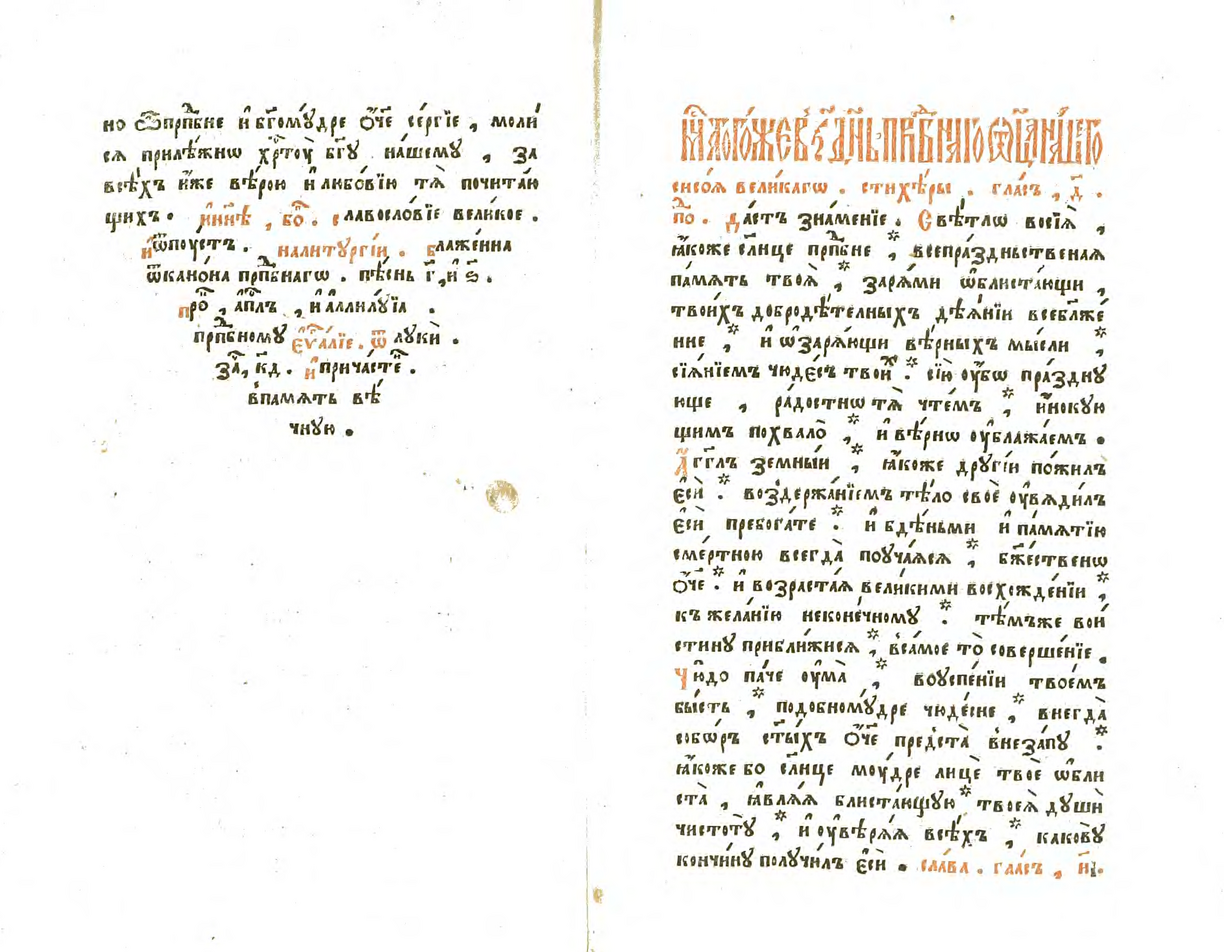 но ѽ прпⷣбне и҆ бг҃омꙋ́дре ѻ҆́ч҃е се́ргїе , моли́
сѧ прилѣ́жнѡ хрⷭ҇тоу̀ бг҃ꙋ нашемꙋ , за
всѣ́хъ и҆́же вѣ́рою и҆ любо́вїю тѧ̀ почита́ю
щихъ . и҆ нн҃ѣ , бо́ . славосло́вїе вели́кое .
и҆ ѿпоустъ . на литꙋргі́и . блаже́нна
ѿ кано́на прпⷣбнагѡ . пѣ́снь г҃ , и҆ ѕ҃ .
про , а҆пⷭ҇лъ , и҆ а҆ллилꙋ́їа .
прпⷣбномꙋ є҆ѵⷢ҇а́лїе . ѿ лꙋки̑ .
за , к҃д . и҆ прича́сте .
в̾ па́мѧть вѣ́
чнꙋю .
мцⷭ҇а тогѡ́же в҃ і҃ дн҃ь прпⷣбнагѡ ѻ҆ц҃а на́шегѡ
сисо́ѧ вели́кагѡ . стихѣ́ры . гла́съ , д҃ .
по . Да́стъ зна́менїе . Свѣ́тлѡ восїѧ̀ ,
ꙗ҆́коже сл҃нце прпⷣбне * , всепра́здньственаѧ
па́мѧть твоѧ̀ * , зарѧ́ми ѡ҆блиста́ющи ,
твои́хъ добродѣ́телныхъ дѣѧ́нїи всеблаже́
нне , * и҆ ѡ҆зарѧ́ющи вѣ́рныхъ мы́сли , *
сїѧ́нїемъ чюде́съ твои́х . * сїю̀ оу҆̀бѡ пра́зднꙋ
юще , ра́достнѡ тѧ̀ чте́мъ , * и҆́нокꙋ
щимъ похвало̀ , * и҆ вѣ́рнѡ оу҆блажа́емъ .
А҆́гг҃лъ земны́и , * ꙗ҆́коже дрꙋгі́и пожи́лъ
є҆сѝ . * воздержа́нїемъ тѣ́ло своѐ оу҆вѧди́лъ
є҆сѝ пребога́те . * и҆ бдѣ́ньми и҆ па́мѧтїю
сме́ртною всегда̀ поуча́ѧсѧ , * бж҃е́ственѡ
ѻ҆́ч҃е . * и҆ возраста́ѧ вели́кими восхожде́нїи , *
къ жела́нїю неконе́чномꙋ . * тѣ́мъже вои́
стинꙋ прибли́жисѧ , * в̾ са́мое то̀ соверше́нїе .
Чю́до па́че оу҆ма̀ , * во оуспе́нїи твое́мъ
бы́сть , * подобномꙋ́дре чюде́сне , * внегда̀
собѡ́ръ ст҃ы́хъ ѻ҆́ч҃е предста̀ в̾неза́пꙋ . *
ꙗ҆́коже бо сл҃нце моу́дре лицѐ твоѐ ѡ҆бли
ста̀ , ꙗ҆влѧ́ѧ блиста́ющꙋю * твоеѧ̀ дꙋшѝ
чистотꙋ̀ , * и҆ оу҆вѣрѧ́ѧ всѣ́хъ , * каковꙋ̀
кончи́нꙋ полꙋчи́лъ є҆сѝ . сла́ва . гла́съ , и҃ .